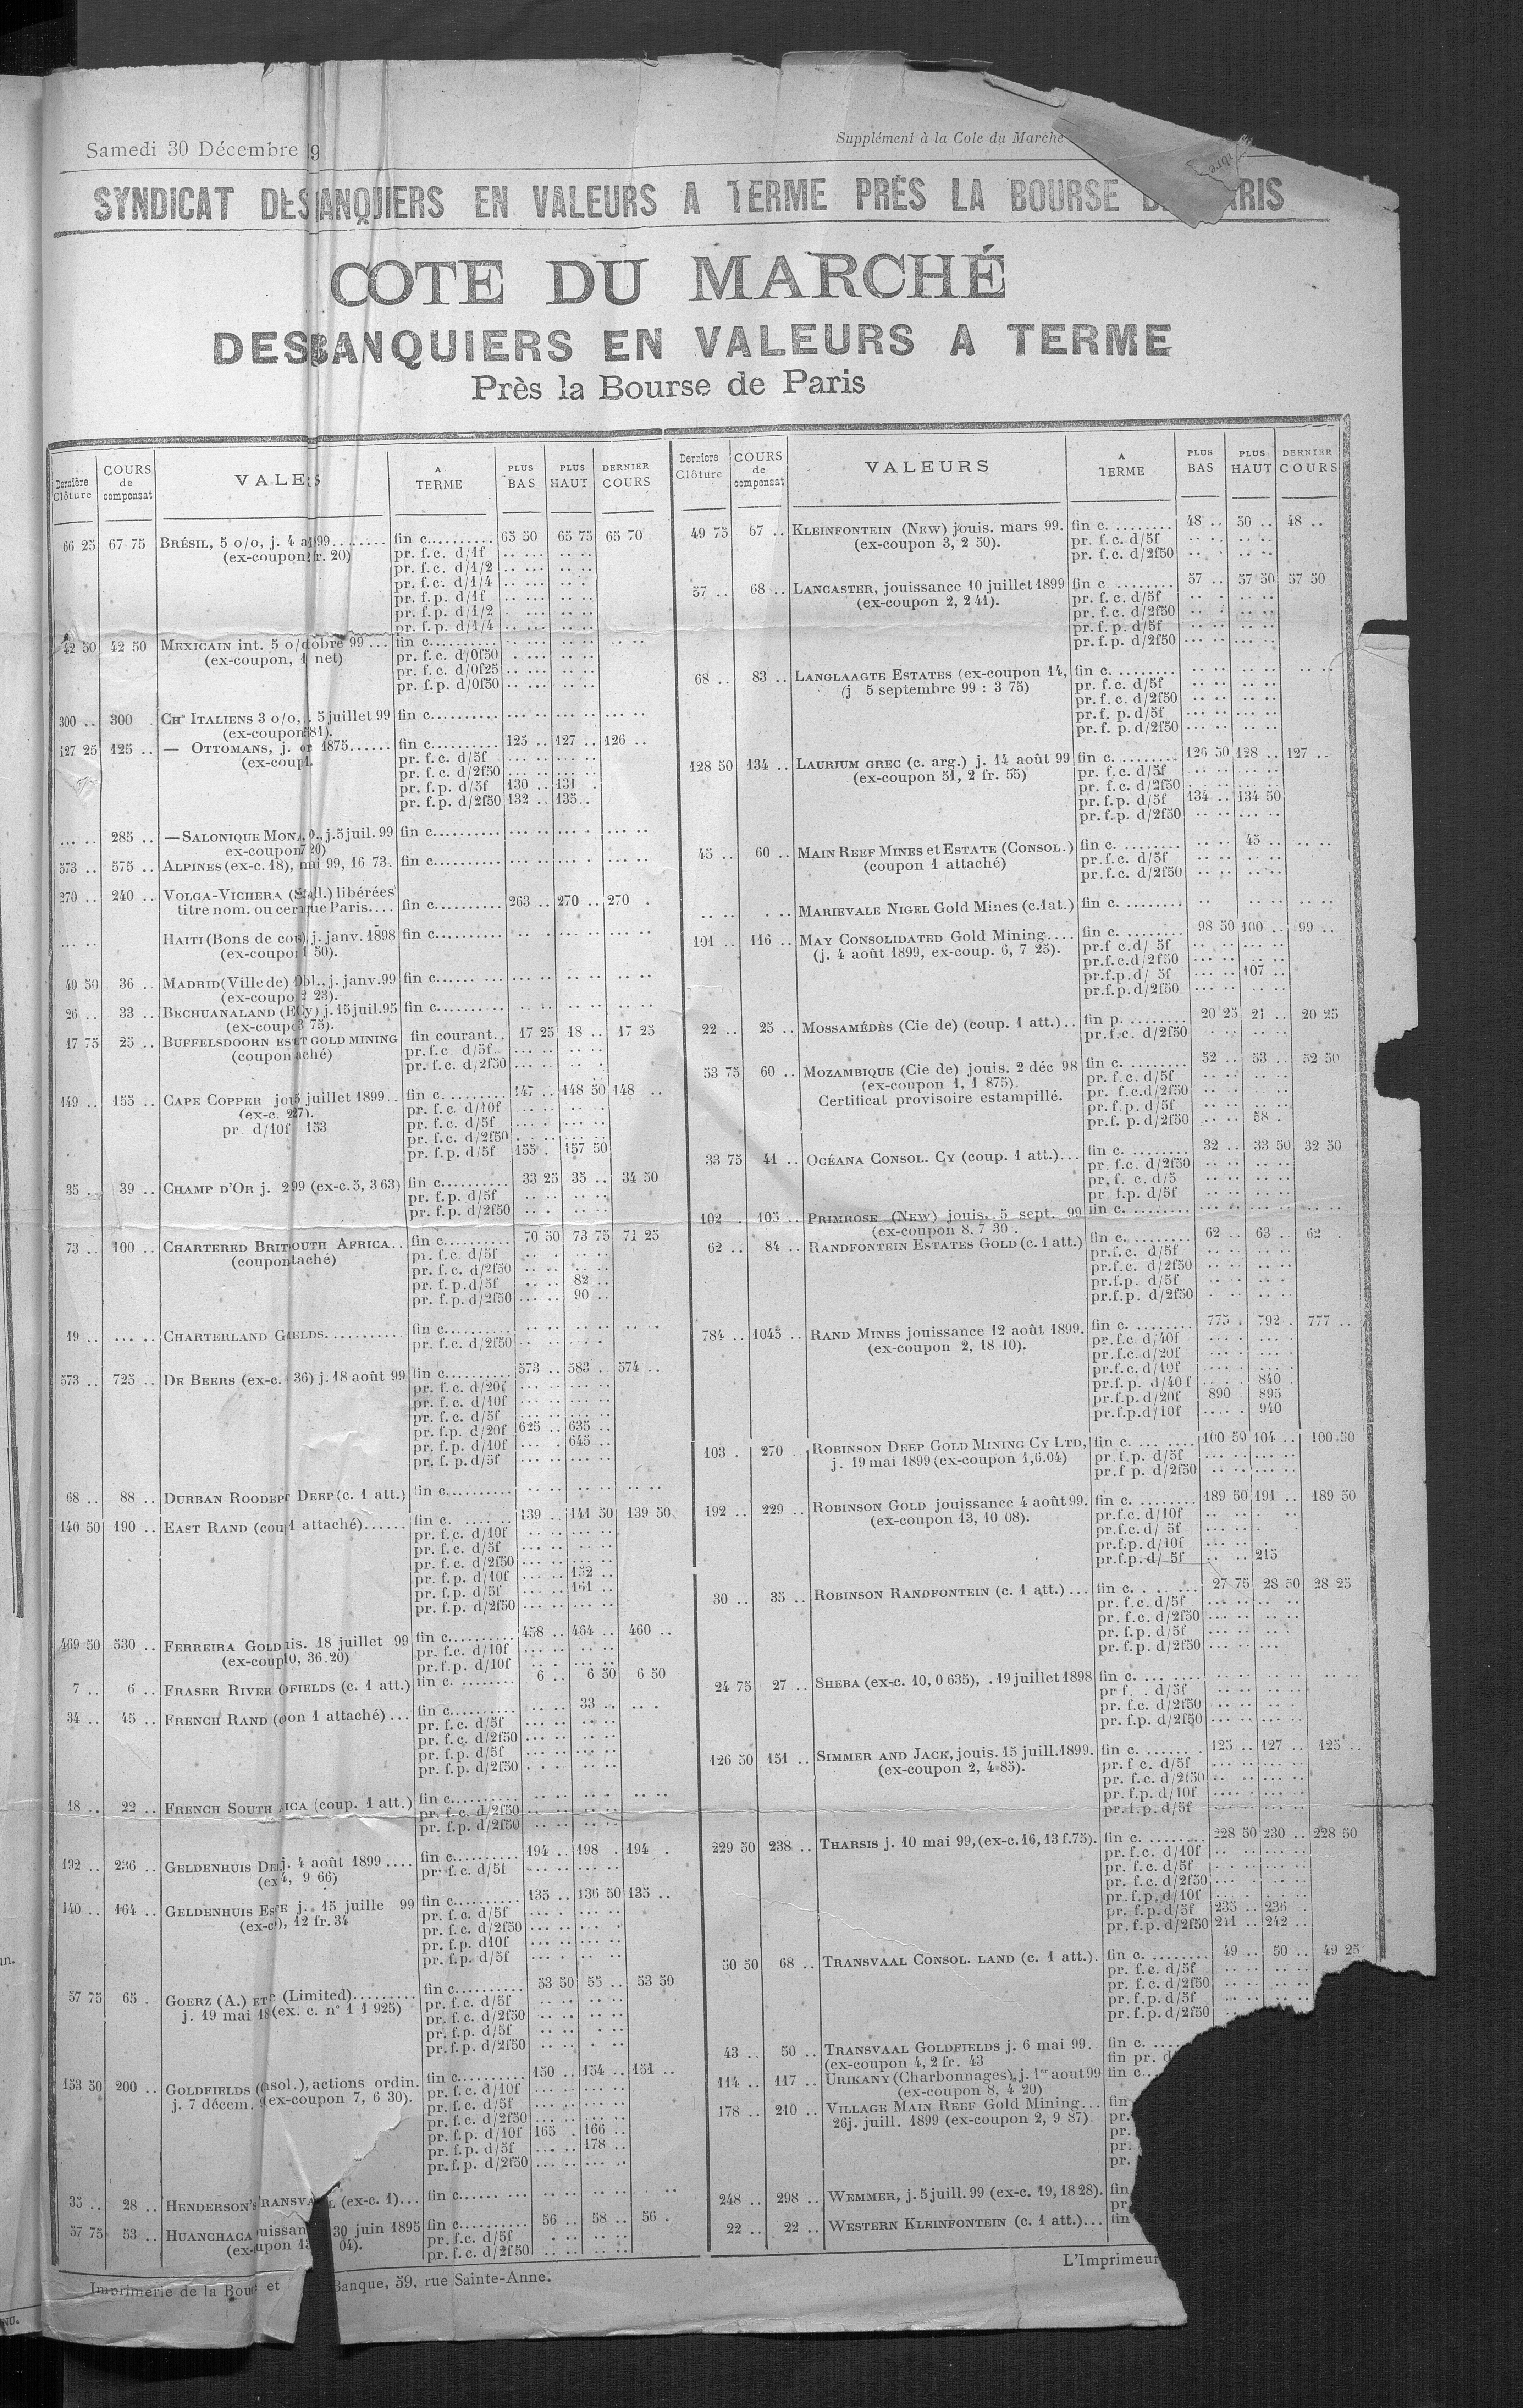 Samedi 30 Décembre 9
Supplément à la Cote du Marché
SYNDICAT DES ANQUIERS EN VALEURS A TERME PRÈS LA BOURSE RIS
COTE DU MARCHÉ
DES BANQUIERS EN VALEURS A TERME
Près la Bourse de Paris
Dernière Clôture COURS de compensat VALE S A TERME PLUS BAS PLUS HAUT DERNIER COURS
66 25 67 75 BRÉSIL, 5 o/o, j. 4 a 99 fin c. 65 50 65 75 65 70
(ex-coupon r. 20) pr. f.c. d/1f
pr. f.c. d/1/2
pr. f.c. d/1/4
pr. f.p. d/1f
pr. f.p. d/1/2
pr. f.p. d/1/4
42 50 42 50 MEXICAIN int. 5 o/ obre 99 fin c.
(ex-coupon, 1 net) pr. f.c. d/0f50
pr. f.c. d/0f25
pr. f.p. d/0f50
300 .. 300 CHns ITALIENS 3 o/o, 5 juillet 99 fin c.
(ex-coupon 81).
127 25 125 .. — OTTOMANS, j. 1875 fin c. 125 .. 127 .. 126 ..
(ex-coup pr. f.c. d/5f
pr. f.c. d/2f50
pr. f.p. d/5f 130 .. 131
pr. f.p. d/2f50 132 .. 135 ..
285 .. — SALONIQUE MON , j. 5 juil. 99 fin c.
ex-coupon 20)
573 .. 575 .. ALPINES (ex-c. 18), mai 99, 16 73. fin c.
270 .. 240 .. VOLGA-VICHERA ( ll.) libérées
titre nom. ou cer que Paris fin c. 263 .. 270 .. 270
HAITI (Bons de co j. janv. 1898 fin c.
(ex-coupon 50).
40 50 36 .. MADRID (Ville de) Obl., j. janv. 99 fin c.
(ex-coupo 23).
26 .. 33 .. BECHUANALAND (E Cy) j. 15 juil. 95 fin c.
(ex-coup 75).
17 75 25 .. BUFFELSDOORN EST GOLD MINING fin courant 17 25 18 .. 17 25
(coupon aché) pr. f.c. d/5f
pr. f.c. d/2f50
149 .. 155 .. CAPE COPPER jo 5 juillet 1899 fin c. 147 .. 148 50 148 ..
(ex-c. 27). pr. f.c. d/10f
pr d/10f 153 pr. f.c. d/5f
pr. f.c. d/2f50
pr. f.p. d/5f 155 . 157 50
35 .. 39 .. CHAMP D'OR j. 2 99 (ex-c. 5, 3 63) fin c. 33 25 35 .. 34 50
pr. f.p. d/5f
pr. f.p. d/2f50
73 .. 100 .. CHARTERED BRIT OUTH AFRICA fin c. 70 50 73 75 71 25
(coupon taché) pr. f.c. d/5f
pr. f.c. d/2f50
pr. f.p. d/5f 82 ..
pr. f.p. d/2f50 90 ..
19 .. CHARTERLAND G ELDS fin c.
pr. f.c. d/2f50
573 .. 725 .. DE BEERS (ex-c. 36) j. 18 août 99 fin c. 573 .. 583 .. 574 ..
pr. f.c. d/20f
pr. f.c. d/10f
pr. f.c. d/5f
pr. f.p. d/20f 625 .. 635 ..
pr. f.p. d/10f 645 ..
pr. f.p. d/5f
68 .. 88 .. DURBAN ROODEP DEEP (c. 1 att.) fin c.
140 50 190 .. EAST RAND (cou 1 attaché) fin c. 139 .. 141 50 139 50
pr. f.c. d/10f
pr. f.c. d/5f
pr. f.c. d/2f50
pr. f.p. d/10f 152 ..
pr. f.p. d/5f 161 ..
pr. f.p. d/2f50
469 50 530 .. FERREIRA GOLD is. 18 juillet 99 fin c. 458 .. 464 .. 460 ..
(ex-coup 10, 36.20) pr. f.c. d/10f
pr. f.p. d/10f
7 .. 6 .. FRASER RIVER FIELDS (c. 1 att.) fin c. 6 .. 6 50 6 50
34 .. 45 .. FRENCH RAND ( on 1 attaché) fin c. 33 ..
pr. f.c. d/5f
pr. f.c. d/2f50
pr. f.p. d/5f
pr. f.p. d/2f50
18 .. 22 .. FRENCH SOUTH ICA (coup. 1 att.) fin c.
pr. f.c. d/2f50
pr. f.p. d/2f50
192 .. 236 .. GELDENHUIS DE j. 4 août 1899 fin c. 194 .. 198 . 194 .
(ex 4, 9 66) pr. f.c. d/5f
140 .. 164 .. GELDENHUIS ES E j. 15 juille 99 fin c. 135 .. 136 50 135 ..
(ex-c ), 12 fr. 34 pr. f.c. d/5f
pr. f.c. d/2f50
pr. f.p. d10f
pr. f.p. d/5f
57 75 65 . GOERZ (A.) ET (Limited) fin c. 53 50 55 .. 53 50
j. 19 mai 18 (ex. c. n° 1 1 925) pr. f.c. d/5f
pr. f.c. d/2f50
pr. f.p. d/5f
pr. f.p. d/2f50
153 50 200 .. GOLDFIELDS ( nsol.), actions ordin. fin c. 150 .. 154 .. 151 ..
j. 7 décem. 9 (ex-coupon 7, 6 30). pr. f.c. d/10f
pr. f.c. d/5f
pr. f.c. d/2f50
pr. f.p. d/10f 165 . 166 ..
pr. f.p. d/5f 178 ..
pr. f.p. d/2f50
35 .. 28 .. HENDERSON'S RANSVA L (ex-c. 1) fin c.
57 75 53 .. HUANCHACA ouissan 30 juin 1895 fin c. 56 .. 58 .. 56 .
(ex-upon 13 04). pr. f.c. d/5f
pr. f.c. d/2f50
Dernière Clôture COURS de compensat VALEURS A TERME PLUS BAS PLUS HAUT DERNIER COURS
49 75 67 .. KLEINFONTEIN (NEW) jouis. mars 99. fin c. 48 .. 50 .. 48 ..
(ex-coupon 3, 2 50). pr. f.c. d/5f
pr. f.c. d/2f50
57 .. 68 .. LANCASTER, jouissance 10 juillet 1899 fin c. 57 .. 57 50 57 50
(ex-coupon 2, 2 41). pr. f.c. d/5f
pr. f.c. d/2f50
pr. f.p. d/5f
pr. f.p. d/2f50
68 .. 83 .. LANGLAAGTE ESTATES (ex-coupon 14, fin c.
(j 5 septembre 99 : 3 75) pr. f.c. d/5f
pr. f.c. d/2f50
pr. f. p. d/5f
pr. f. p. d/2f50
128 50 134 .. LAURIUM GREC (c. arg.) j. 14 août 99 fin c. 126 50 128 .. 127 ..
(ex-coupon 51, 2 fr. 55) pr. f.c. d/5f
pr. f.c. d/2f50
pr. f.p. d/5f 134 .. 134 50
pr. f.p. d/2f50
45 .. 60 .. MAIN REEF MINES et ESTATE (CONSOL.) fin c. 45 ..
(coupon 1 attaché) pr. f.c. d/5f
pr. f.c. d/2f50
MARIEVALE NIGEL Gold Mines (c. 1 at.) fin c.
101 .. 116 .. MAY CONSOLIDATED Gold Mining fin c. 98 50 100 .. 99 ..
(j. 4 août 1899, ex-coup. 6, 7 25). pr.f c.d/ 5f
pr.f.c.d/2f50
pr.f.p.d/ 5f 107 ..
pr.f.p.d/2f50
22 .. 25 .. MOSSAMÉDÈS (Cie de) (coup. 1 att.) fin p. 20 25 21 .. 20 25
pr.f.c. d/2f50
53 75 60 .. MOZAMBIQUE (Cie de) jouis. 2 déc 98 fin c. 52 .. 53 .. 52 50
(ex-coupon 1, 1 875). pr. f.c. d/5f
Certificat provisoire estampillé. pr. f.c.d/2f50
pr. f.p. d/5f
pr.f. p. d/2f50 58 .
33 75 41 .. OCÉANA CONSOL. CY (coup. 1 att.) fin c. 32 .. 33 50 32 50
pr. f.c. d/2f50
pr, f. c. d/5
pr f.p. d/5f
102 . 105 .. PRIMROSE (NEW) jouis. 5 sept. 99 fin c.
(ex-coupon 8. 7 30 .
62 .. 84 .. RANDFONTEIN ESTATES GOLD (c. 1 att.) fin c. 62 .. 63 .. 62 .
pr.f.c. d/5f
pr.f.c. d/2f50
pr.f.p. d/5f
pr.f.p. d/2f50
784 .. 1045 .. RAND MINES jouissance 12 août 1899. fin c. 775 . 792 . 777 ..
(ex-coupon 2, 18 10). pr.f.c. d/40f
pr.f.c.d/20f
pr.f.c. d/10f
pr.f.p. d/40f 840 .
pr.f.p.d/20f 890 . 895
pr.f.p.d/10f 940
103 . 270 . ROBINSON DEEP GOLD MINING CY LTD, fin c. 100 50 104 .. 100 50
j. 19 mai 1899 (ex-coupon 1,6.04) pr.f.p. d/5f
pr.f p. d/2f50
192 .. 229 .. ROBINSON GOLD jouissance 4 août 99. fin c. 189 50 191 .. 189 50
(ex-coupon 13, 10 08). pr.f.c. d/10f
pr.f.c.d/ 5f
pr.f.p. d/10f
pr.f.p. d/ 5f 215
30 .. 35 .. ROBINSON RANDFONTEIN (c. 1 att.) fin c. 27 75 28 50 28 25
pr. f.c. d/5f
pr. f.c. d/2f50
pr. f.p. d/5f
pr. f.p. d/2f50
24 75 27 .. SHEBA (ex-c. 10, 0 635), . 19 juillet 1898 fin c.
pr f. . d/5f
pr. f.c. d/2f50
pr. f.p. d/2f50
126 50 151 .. SIMMER AND JACK, jouis. 15 juill. 1899. fin c. 125 .. 127 .. 125 ..
(ex-coupon 2, 4 85). pr. f c. d/5f
pr. f.c. d/2f50
pr. f.p. d/10f
pr. f.p. d/5f
229 50 238 .. THARSIS j. 10 mai 99, (ex-c. 16, 13 f.75). fin c. 228 50 230 .. 228 50
pr. f.c. d/10f
pr. f.c. d/5f
pr. f.c. d/2f50
pr. f.p. d/10f
pr. f.p. d/5f 235 .. 236 .
pr. f.p. d/2f50 241 .. 242 ..
50 50 68 .. TRANSVAAL CONSOL. LAND (c. 1 att.). fin c. 49 .. 50 .. 49 25
pr. f.c. d/5f
pr. f.c. d/2f50
pr. f.p. d/5f
pr. f.p. d/2f50
43 .. 50 .. TRANSVAAL GOLDFIELDS j. 6 mai 99. fin c.
(ex-coupon 4, 2 fr. 43 fin pr. d
114 .. 117 .. URIKANY (Charbonnages), j. 1er aout 99 fin c.
(ex-coupon 8, 4 20)
178 .. 210 .. VILLAGE MAIN REEF Gold Mining fin
26 j. juill. 1899 (ex-coupon 2, 9 87). pr.
pr.
pr.
pr.
248 .. 298 .. WEMMER, j. 5 juill. 99 (ex-c. 19, 18 28). fin
pr
22 .. 22 .. WESTERN KLEINFONTEIN (c. 1 att.) fin
L'Imprimeur
Imprimerie de la Bou et Banque, 59, rue Sainte-Anne.